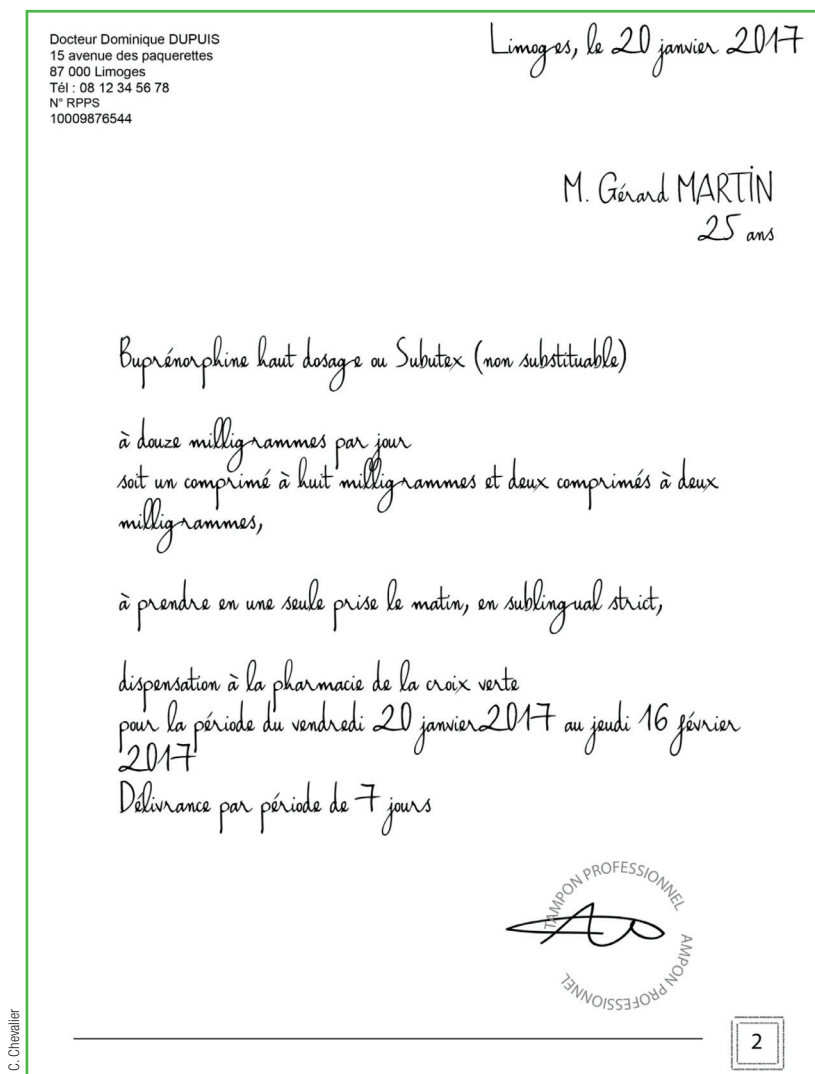 Docteur Dominique DUPUIS
15 avenue des paquerettes
87 000 Limoges
Tél : 08 12 34 56 78
N° RPPS
10009876544
Limoges, le 20 janvier 2017
M. Gérard MARTIN
25 ans
Buprénorphine haut dosage ou Subutex (non substituable)
à douze milligrammes par jour
soit un comprimé à huit milligrammes et deux comprimés à deux
milligrammes,
à prendre en une seule prise le matin, en sublingual strict,
dispensation à la pharmacie de la croix verte
pour la période du vendredi 20 janvier 2017 au jeudi 16 février
2017
Délivrance par période de 7 jours
TAMPON PROFESSIONNEL
AMPON PROFESSIONNEL
2
C. Chevalier